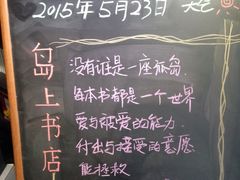 2015年5月23日
岛上书店
没有谁是一座孤岛
每本书都是一个世界
爱与被爱的能力
付出与接受的意愿
能拯救